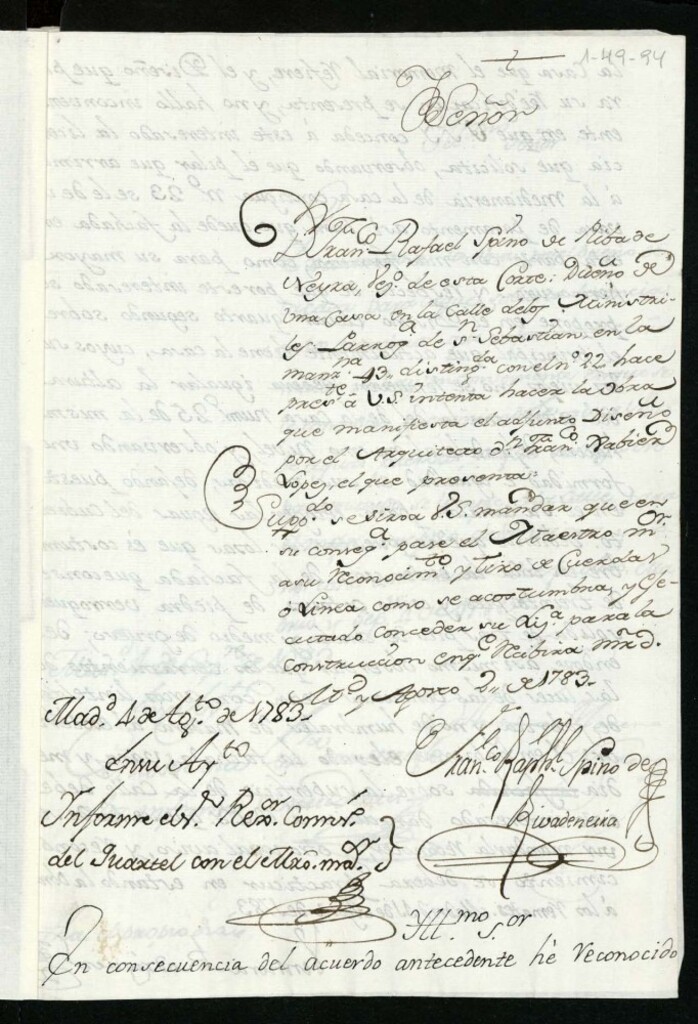 1-49-94
Señor
Dn. Franco. Rafael Spino de Riba de
Neyra, Vejo. de esta Corte: Dueño de
una Casa en la Calle delos Ministri
les Parroqa. de Sn. Sebastian en la
manzna. 43, distingda. con el no. 22, hace
preste. à V.S. intenta hacer la Obra
que manifiesta el adjunto Diseño
por el Arquitecto dn. Franco. Xabier
Lopez, el que presenta:
Suppdo. se sirva V.S. mandar que en
su conseqa. pase el Maestro mor.
a su Reconocimto. y tiro de Cuerdas
ô Linea como se acostumbra, y Efe
cutado conceder su Lizа. para la
construccion en qe. Recibirá mrd.
Md. y Agosto 2,, de 1783.
Madd. 4 de Agto. de 1783.
En su Ayto.
Franco. Raphl. Spino de
Rivadeneira
Informe el Sr. Rexor. Comisro.
del Quartel con el Mro. mor.
Yllmo. Sor.
En consecuencia del acuerdo antecedente hè reconocido